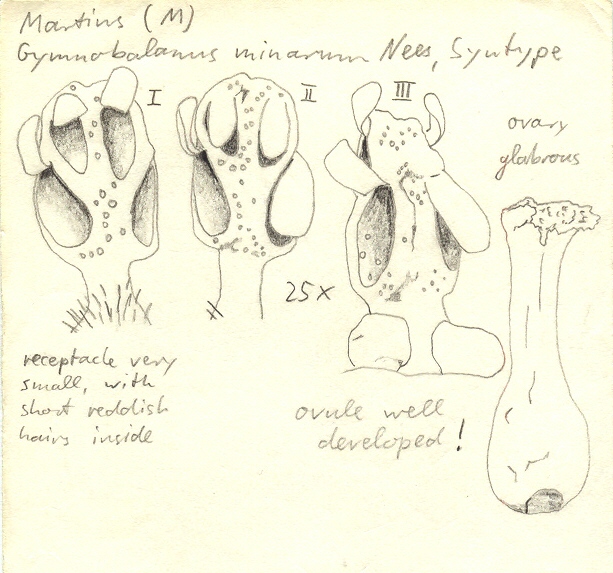 Martius (M)
Gymnobalanus minarum Nees, Syntype
I
II
III
ovary
glabrous
25x
receptacle very
small, with
short reddish
hairs inside
ovule well
developed!